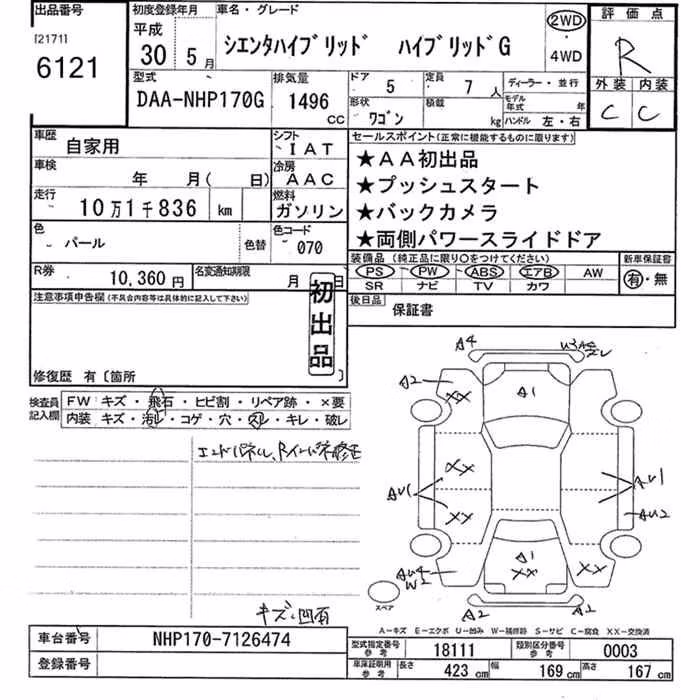 出品番号
[2171]
6121
初度登録年月
平成
30年 5月
車名・グレード
シエンタハイブリッド ハイブリッドG
2WD
・
4WD
評価点
R
外装 内装
C C
型式
DAA-NHP170G
排気量
1496
CC
ドア
5
定員
7人
ディーラー・並行
形状
ワゴン
積載
kg
モデル年式 年
ハンドル 左・右
車歴
自家用
シフト
IAT
車検
年 月( 日)
冷房
AAC
走行
10万1千836 km
燃料
ガソリン
色
パール
色替
色コード
070
R券
10,360円
名変通知期限
月 日
セールスポイント(正常に機能するものに限ります)
★AA初出品
★プッシュスタート
★バックカメラ
★両側パワースライドドア
装備品 (純正品に限り○をつけてください)
新車保証書
PS PW ABS エアB AW
SR ナビ TV カワ
有・無
後日品
保証書
注意事項申告欄(不具合内容等は具体的に記入して下さい)
初出品
修復歴 有〔箇所 〕
検査員記入欄
FW キズ・飛石・ヒビ割・リペア跡・×要
内装 キズ・汚レ・コゲ・穴・スレ・キレ・破レ
エンドパネル、Rインパネ補修歪
キズ・凹有
A4
U3
A2
XX
A1
XX
AU1
XX
AU1
AU2
A1
XX
XX
AU4
W2
A2
A2
スペア
A-キズ E-エクボ U-凹み W-補修跡 S-サビ C-腐食 XX-交換済
車台番号
NHP170-7126474
登録番号
型式指定番号
参考
18111
類別区分番号
参考
0003
車庫証明用
参考
長さ
423 cm
幅
169 cm
高さ
167 cm